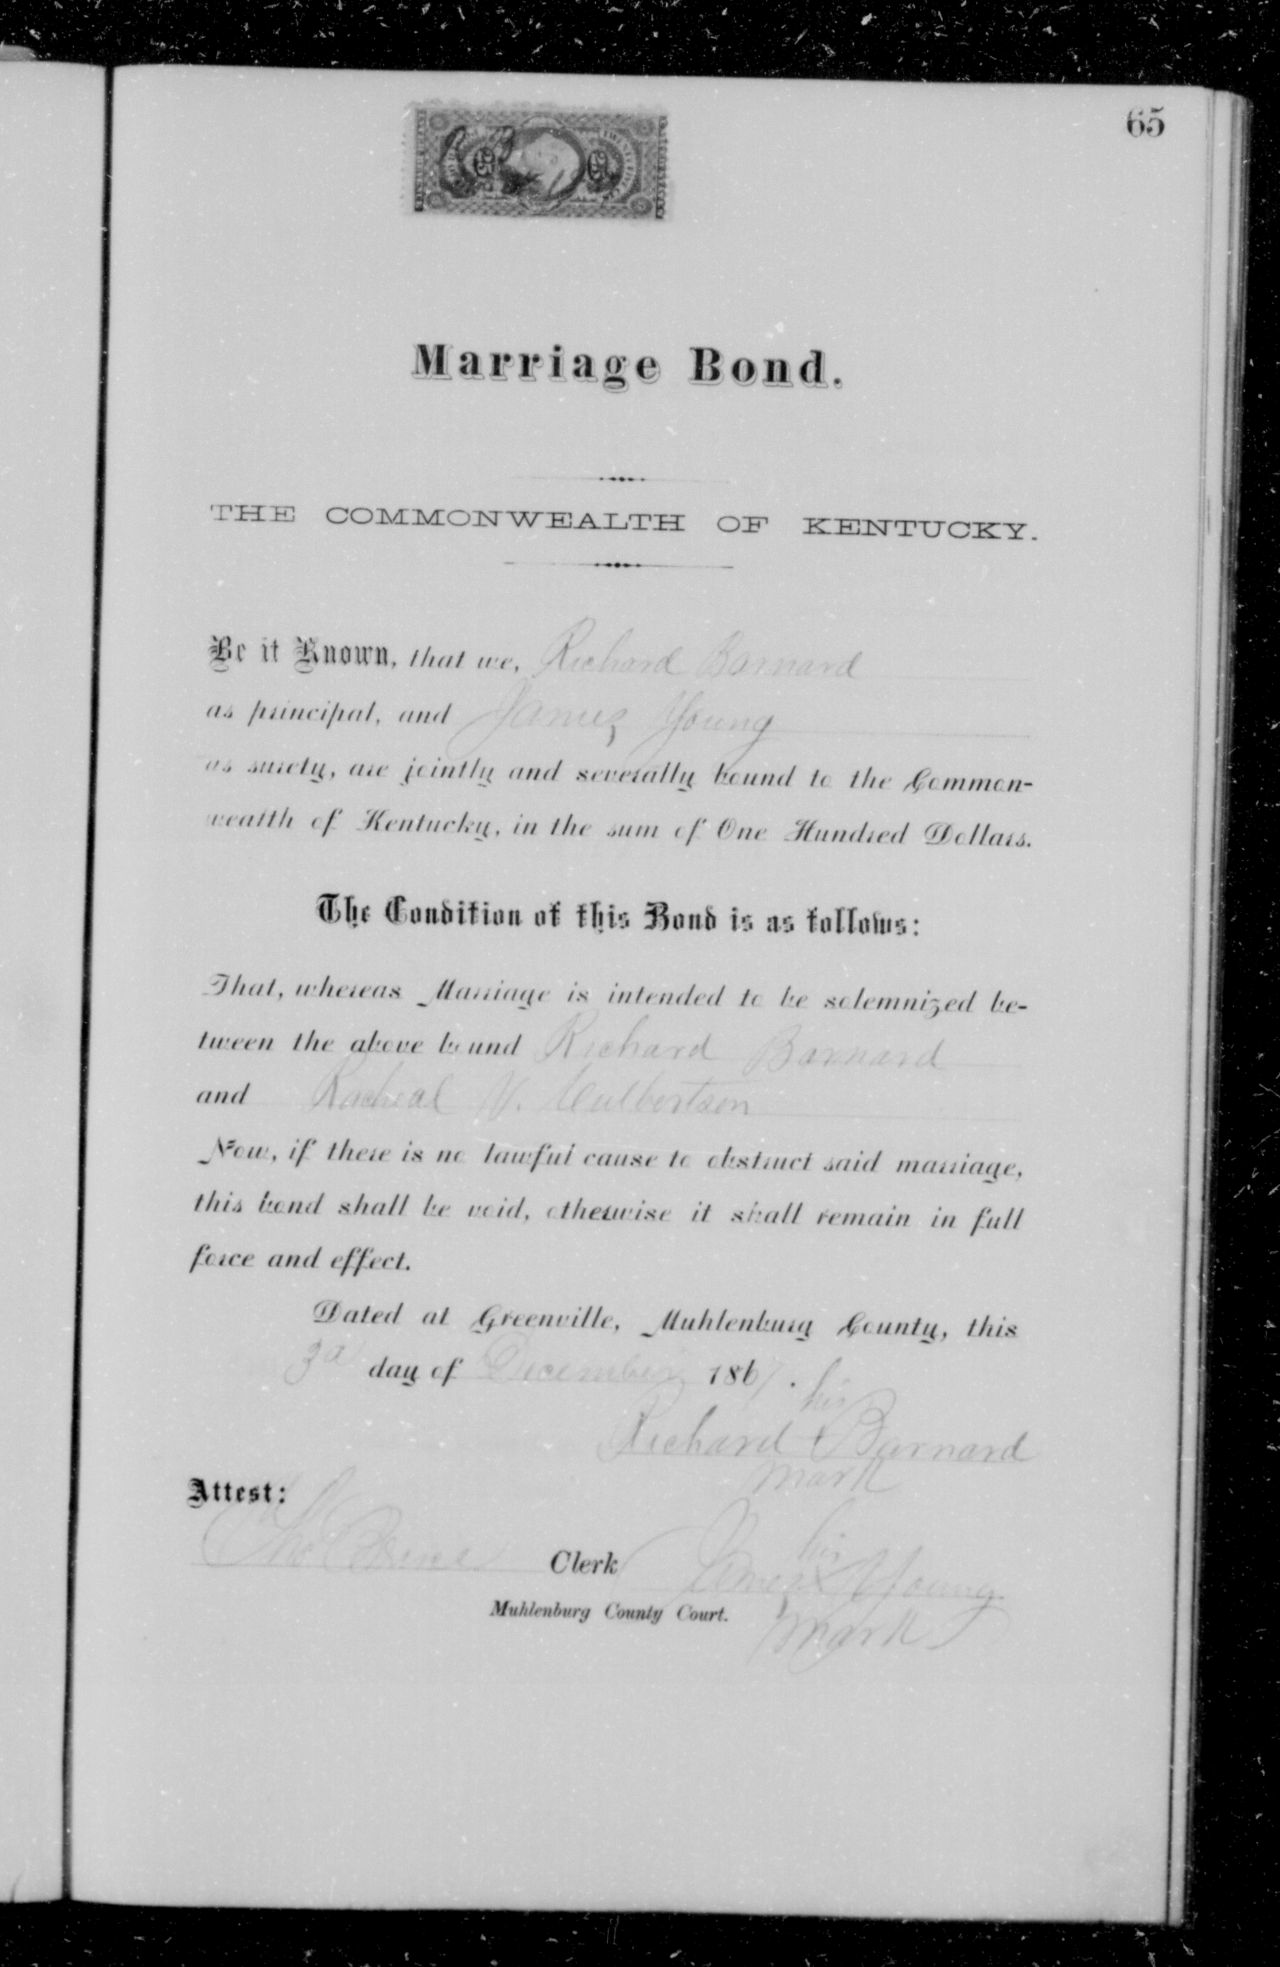 65
Marriage Bond.
THE COMMONWEALTH OF KENTUCKY.
Be it Known, that we, Richard Barnard
as principal, and James Young
as surety, are jointly and severally bound to the Common-
wealth of Kentucky, in the sum of One Hundred Dollars.
The Condition of this Bond is as follows:
That, whereas Marriage is intended to be solemnized be-
tween the above bound Richard Barnard
and Racheal V. Culbertson
Now, if there is no lawful cause to obstruct said marriage,
this bond shall be void, otherwise it shall remain in full
force and effect.
Dated at Greenville, Muhlenburg County, this
3d day of December 1867.
his
Richard + Barnard
mark
Attest:
Clerk
his
James x Young
mark
Muhlenburg County Court.